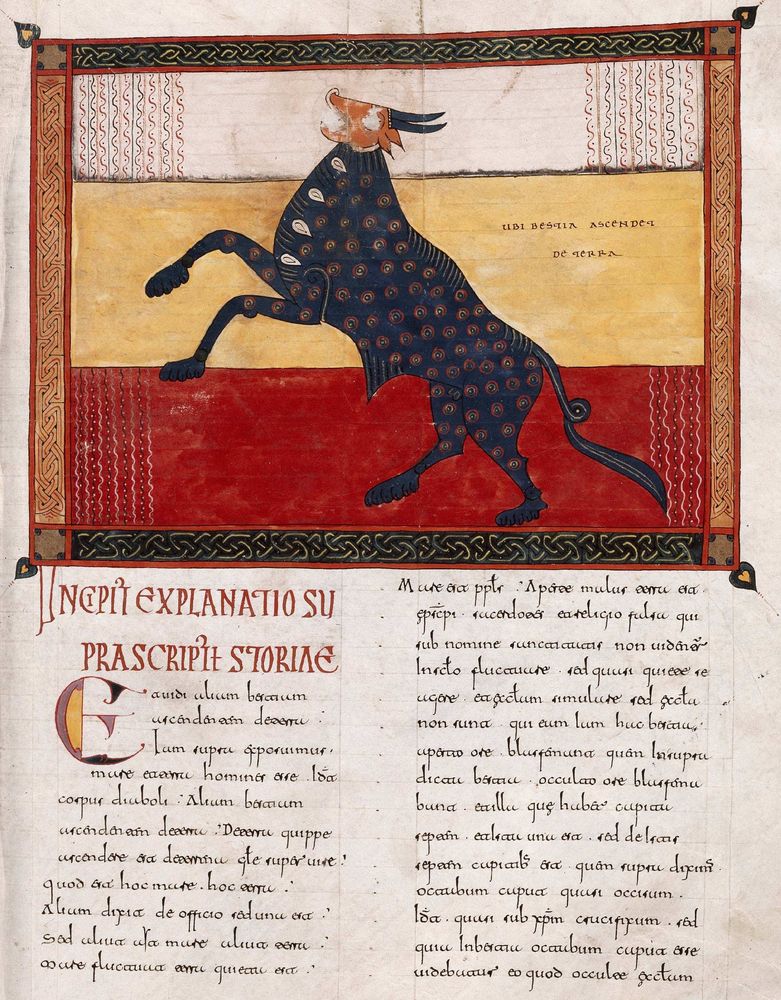 UBI BESTIA ASCENDET
DE TERRA
INCIPIT EXPLANATIO SU
PRASCRIPTE STORIAE
Et uidi aliam bestiam
ascendentem de terra .
Iam supra exposuimus .
mare et terra homines esse . Id ÷
corpus diaboli . Aliam bestiam
ascendentem de terra . De terra quippe
ascendere est de terrena
quod est hoc mare . hoc terra .
Aliam dixit de officio sed una est .
Sed aliut mare aliut terra .
Mare fluctuat terra quieta est .
Mare est ppls . Aperte malus terra est
epscpi . sacerdotes et religio falsa qui
sub nomine sanctitatis non uidentur
In sclo fluctuare . sed quasi quiete se
agere . et simulare sed
non sunt . qui hac bestia
aperto ore . blasfemant quam In supra
dicta bestia . occulto ore blasfema
bant . et illa que habet capita
septem . et ista una est . sed de istis
septem est . quam supra diximus .
occisum caput quasi occisum .
Id ÷ . quasi sub xpm crucifixum . sed
quia In bestia occisum caput esse
uidebatur eo quod occulte